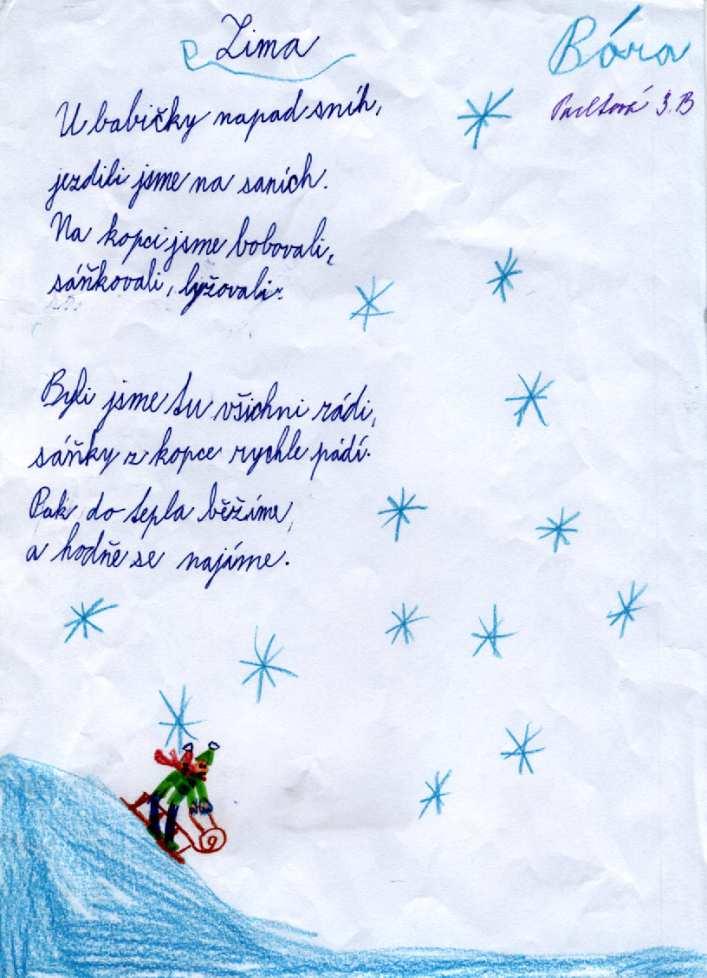 Zima
Bára
3.B
U babičky napad sníh,
jezdili jsme na saních.
Na kopci jsme bobovali,
sáňkovali, lyžovali.
Byli jsme tu všichni rádi,
sáňky z kopce rychle pádí.
Pak do tepla běžíme,
a hodňe se najíme.